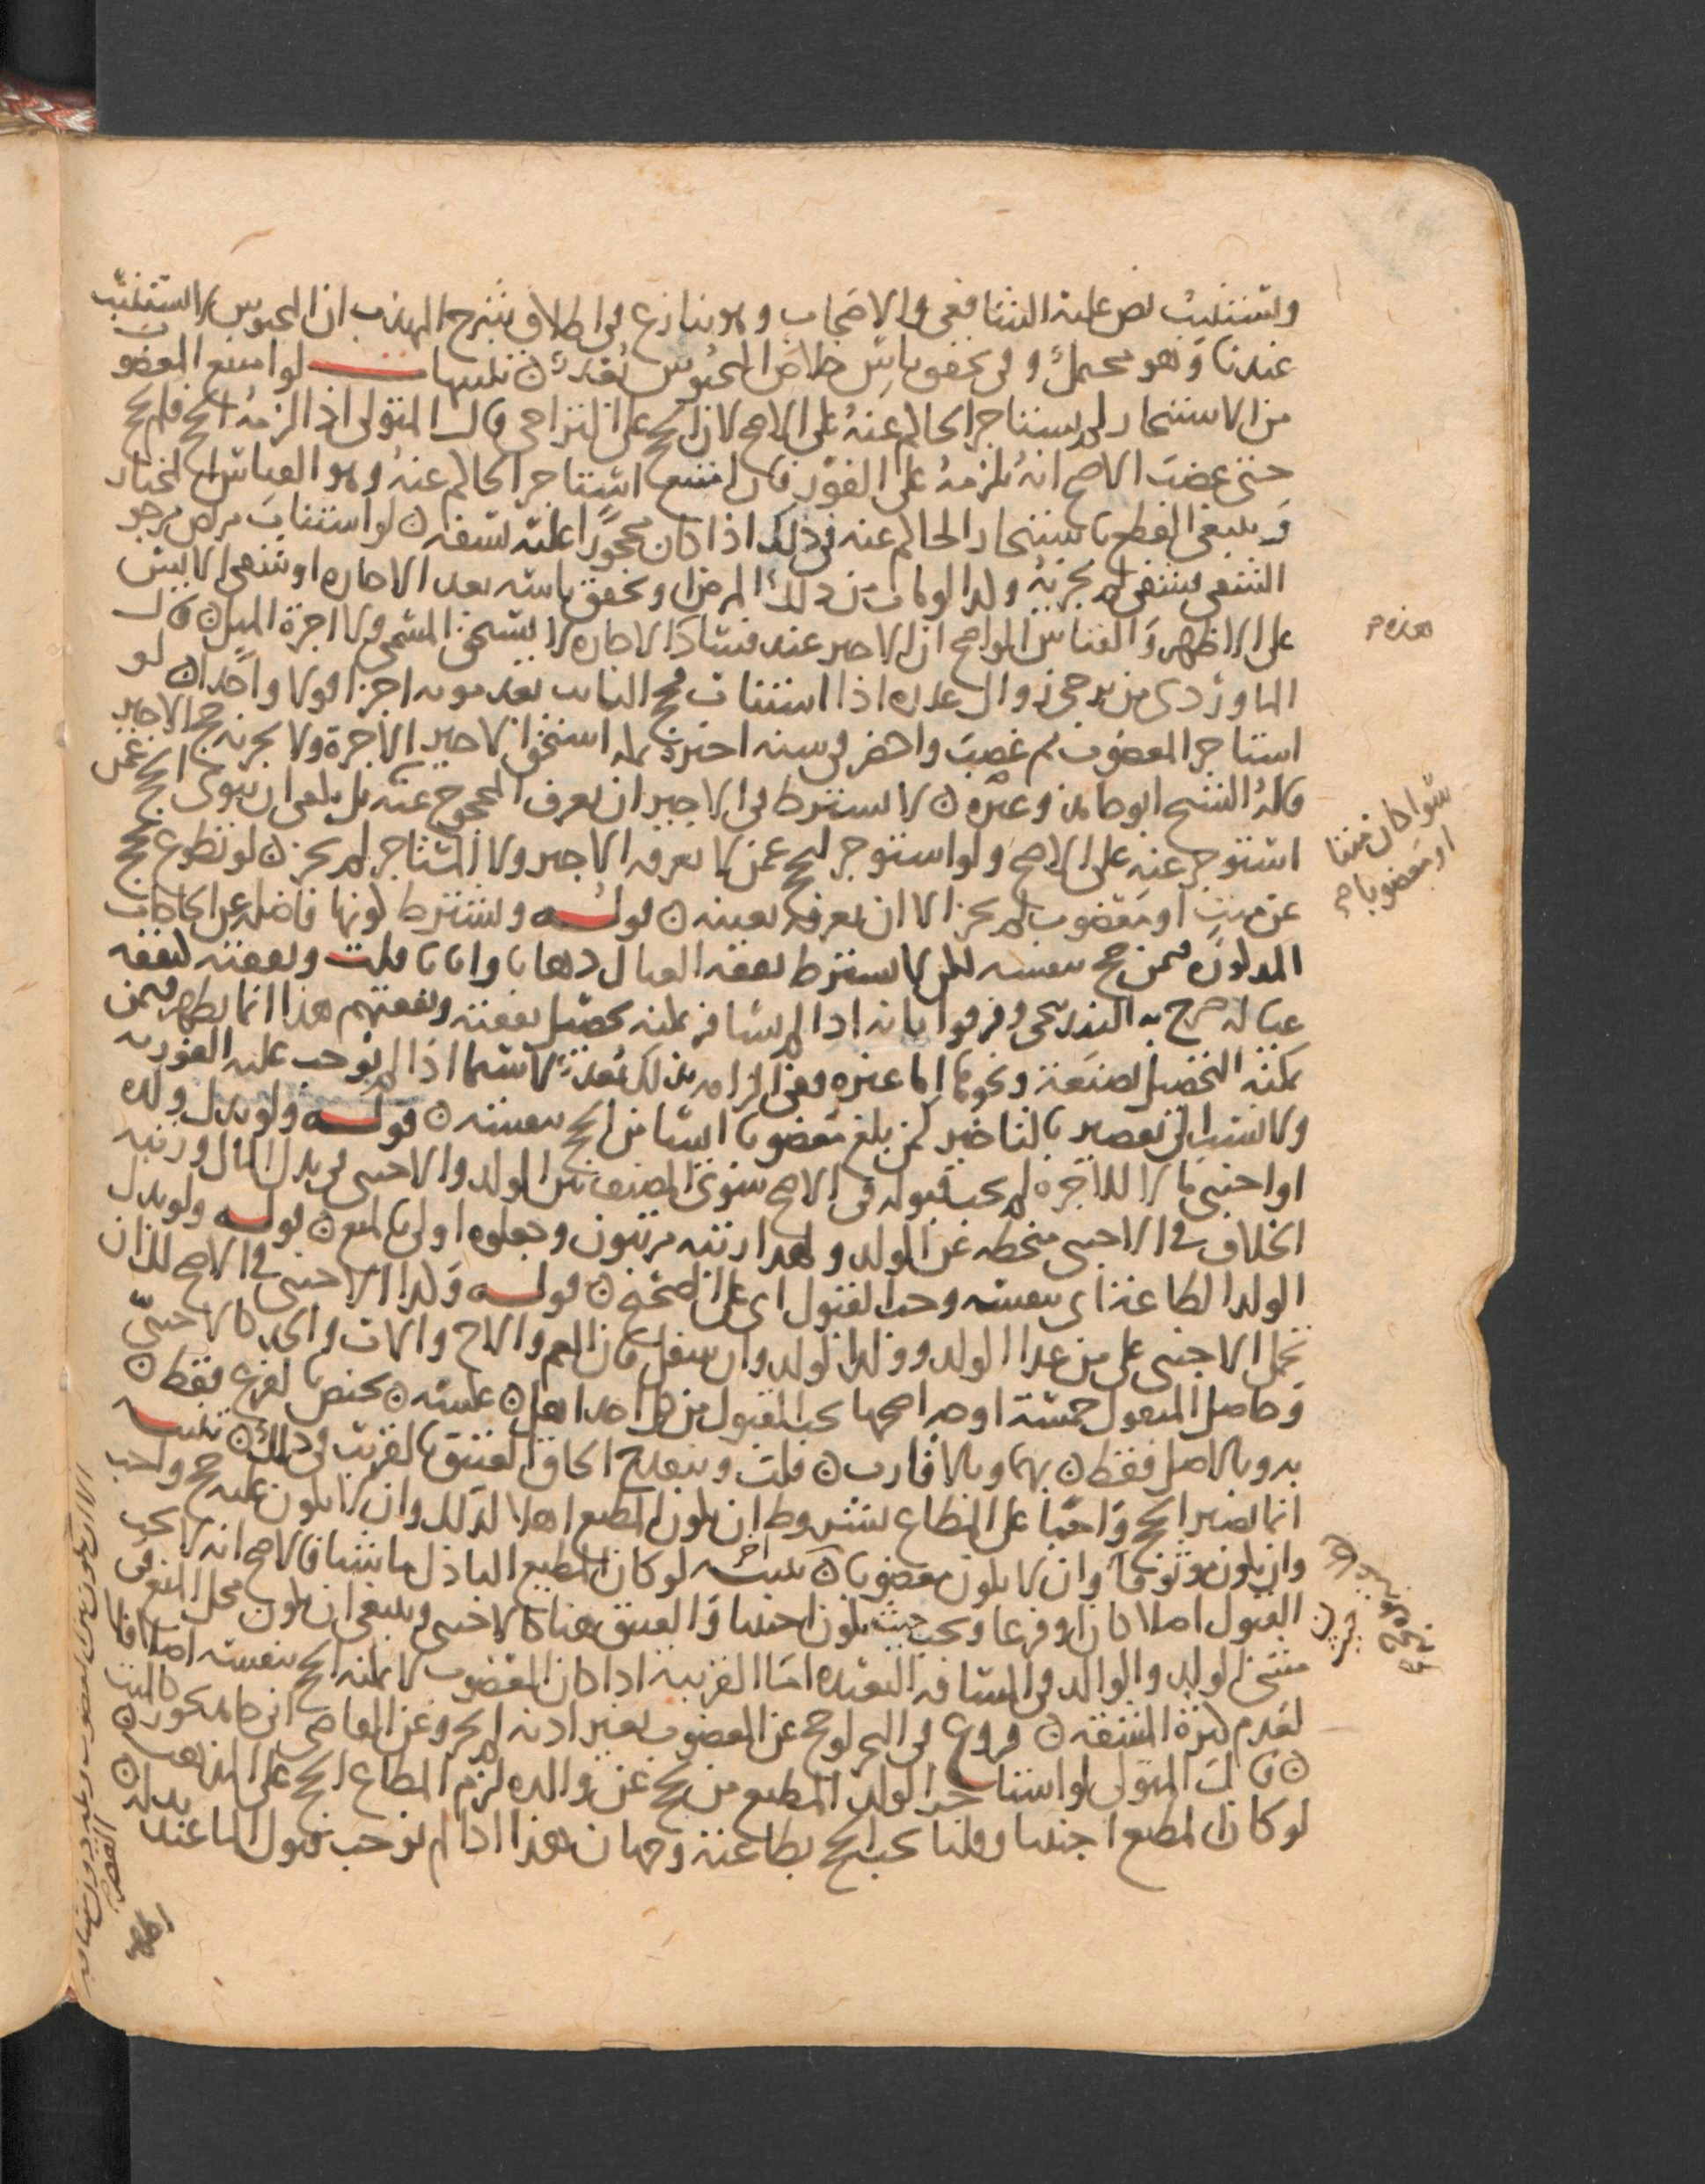 ويستنيب نص عليه الشافعي والاصحاب وهو ينازع في اطلاق شرح المهذب ان المحبوس لا يستنيب
عندنا وهو محمل وفي تحقق ياس خلاص المحبوس بُعد ۞ تنبيهات لو امتنع المعضوب
من الاستئجار لم يستاجر الحاكم عنه على الاصح لان الحج على التراخي قال المتولي اذا لزمه الحج فلم يحج
حتى عضب الاصح انه يلزمه على الفور فان امتنع استاجر الحاكم عنه وهو القياس المختار
وينبغي القطع باستئجار الحاكم عنه في ذلك اذا كان محجورا عليه بسفه ۞ لو استناب مريض مرجو
الشفى فشفى لم يجزئه وكذا لو مات من ذلك المرض او تحقق ياسه بعد الاجارة
على الاظهر والقياس الواضح ان الاجير عند فساد الاجارة لا يستحق المسمى ولا اجرة المثل ۞ قال
الماوردي من يرجى زوال عذره اذا استناب فحج النايب بعد موته اجزا قولا واحدا ۞ لو
استاجر المعضوب ثم غصب واحضر في سنة اجيره مكة استحق الاجير الاجرة ولا يجزئه حج الاجير
قاله الشيخ ابو حامد وغيره ۞ لا يشترط في الاجير ان يعرف المحجوج عنه بل يكفي ان ينوي الحج عمن
استؤجر عنه على الاصح ولو استؤجر ليحج عمن لا يعرفه الاجير ولا المستاجر لم يجز ۞ لو تطوع بحج
عن ميت او معضوب لم يجز الا ان يعرفه بعينه ۞ قوله ويشترط كونها فاضلة عن الحاجات
المذكورة فيمن حج بنفسه لكن لا يشترط نفقة العيال ذهابا وايابا قلت ونفقته كنفقة
عياله صرح به البندنيجي وفرقوا بانه اذا لم يسافر يمكنه تحصيل نفقته ونفقتهم هذا انما يظهر فيمن
يمكنه التحصيل لصنعة ونحوها اما غيره ففي الزامه بذلك بُعد لا سيما اذا لم نوجب عليه الفورية
ولا نسب الى تقصير بالتاخير كمن بلغ معضوبا اسا من الحج بنفسه ۞ قوله ولو بذل ولده
او اجنبي مالا للاجرة لم يجب قبوله في الاصح سوى المصنف بين الولد والاجنبي في بذل المال ورتبة
الخلاف في الاجنبي منحطة عن الولد ولهذا رتبه مرتبون وجعلوه اولى بالمنع ۞ قوله ولو بذل
الولد الطاعة اي بنفسه وجب القبول اي على الصحيح ۞ قوله وكذا الاجنبي في الاصح لكن ان
نحمل الاجنبي على من عدا الولد وولد الولد وان سفل فان العم والاخ والاب والجد كالاجنبي
وحاصل المنقول خمسة اوجه اصحها يجب القبول من كل احد اهل ۞ عكسه ۞ يختص بفرع فقط ۞
به وبالاصل فقط ۞ بهما وبالاقارب ۞ قلت وينقدح الحاق العتيق بالقريب في ذلك ۞ تنبيه
انما يصير الحج واجبا على المطاع بشروط ان يكون المطيع اهلا لذلك وان لا يكون عليه حج واجب
وان يكون موثوقا وان لا يكون معضوبا ۞ تنبيه اخر لو كان المطيع الباذل ماشيا فالاصح انه لا يجب
القبول اصلا كان او فرعا ويجب حيث يكون اجنبيا والعتيق هنا كالاجنبي وينبغي ان يكون محل المنع في
مشي الولد والوالد في المسافة البعيدة اما القريبة اذا كان المعضوب لا يمكنه الحج بنفسه اصلا فلا
لعدم كثرة المشقة ۞ فروع في البحر لو حج عن المعضوب بغير اذنه لم يجز وعن القاضي ابي حامد يجوز كالميت
۞ قال المتولي لو استاجر الولد المطيع من يحج عن والده لزم المطاع الحج على المذهب ۞
لو كان المطيع اجنبيا وقلنا يجب الحج بطاعته وجهان هذا اذا لم نوجب قبول المال عند بذله ۞
سوا كان ميتا
او معضوبا صح